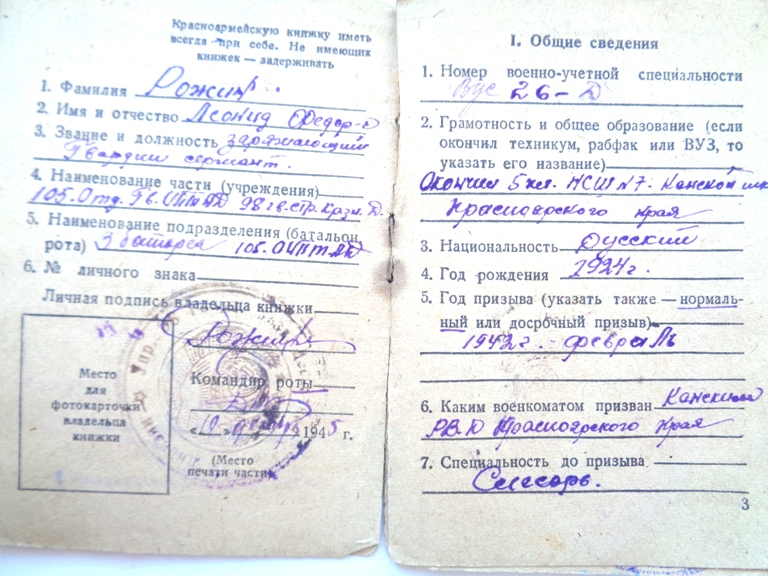 Красноармейскую книжку иметь
всегда при себе. Не имеющих
книжек — задерживать
1. Фамилия Рожин
2. Имя и отчество Леонид Федор-ч
3. Звание и должность заряжающий
Гвардии сержант.
4. Наименование части (учреждения)
105. Отд. Гв. ОИПТАД 98 гв. Стр. Крзн. Д.
5. Наименование подразделения (батальон,
рота) 3 батарея 105. ОИПТАД
6. № личного знака
Личная подпись владельца книжки
Место
для
фотокарточки
владельца
книжки
Командир роты
1945 г.
(Место
печати части)
I. Общие сведения
1. Номер военно-учетной специальности
Вус 26-Д
2. Грамотность и общее образование (если
окончил техникум, рабфак или ВУЗ, то
указать его название)
Окончил 5 кл. НСШ №7. Канской
Красноярского края
3. Национальность Русский
4. Год рождения 1924 г.
5. Год призыва (указать также — нормаль-
ный или досрочный призыв)
1942 г. - февраль
6. Каким военкоматом призван Канским
РВК Красноярского края
7. Специальность до призыва
Слесарь.
3